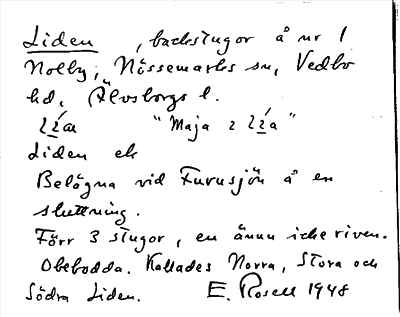 Liden , backstugor å nr 1
Nolby, Nössemarks sn, Vedbo
hd, Älvsborgs l.
"Maja
Liden ek
Belägna vid Furusjön å en
sluttning.
Förr 3 stugor, en ännu icke riven.
Obebodda. Kallades Norra, Stora och
Södra Liden. E. Rosell 1948